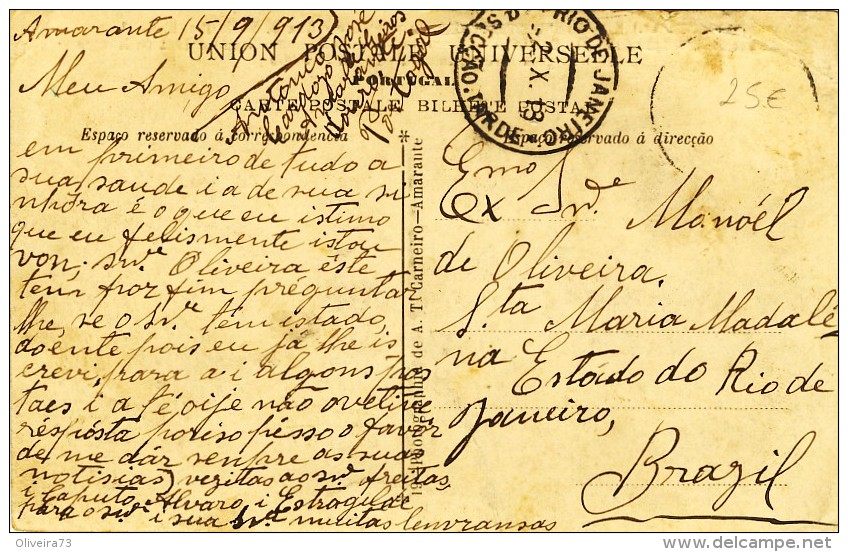 Amarante 15/9/913
UNION POSTALE UNIVERSELLE
PORTUGAL
CARTE POSTALE BILHETE POSTAL
Meu Amigo
Antonio José
Cardozo
Portugal
RIO DE JANEIRO
TARDE
25€
Espaço reservado á correspondencia
Espaço reservado á direcção
em primeiro de tudo a
sua saude i a de sua si
nhóra é o que eu istimo
que eu felismente istou
von, snr. Oliveira éste
tem por fim préguntar
lhe, se o snr. tem estado
doente pois eu já lhe is
crevi, para a i algons pos
taes i a té oije não ove tive
résposta por iso pésso o favor
de me dar senpre as suas
notisias) vezitas ao snr. freitas,
i Caputo, Alvaro, i
para o snr. i sua snra. muitas lenvransas
Photographia de A. T. Carneiro—Amarante
Exmo Snr.
Manoél
de Oliveira,
S.ta Maria Madalé
na Estado do Rio de
Janeiro,
Brazil
Oliveira73
delcampe.net